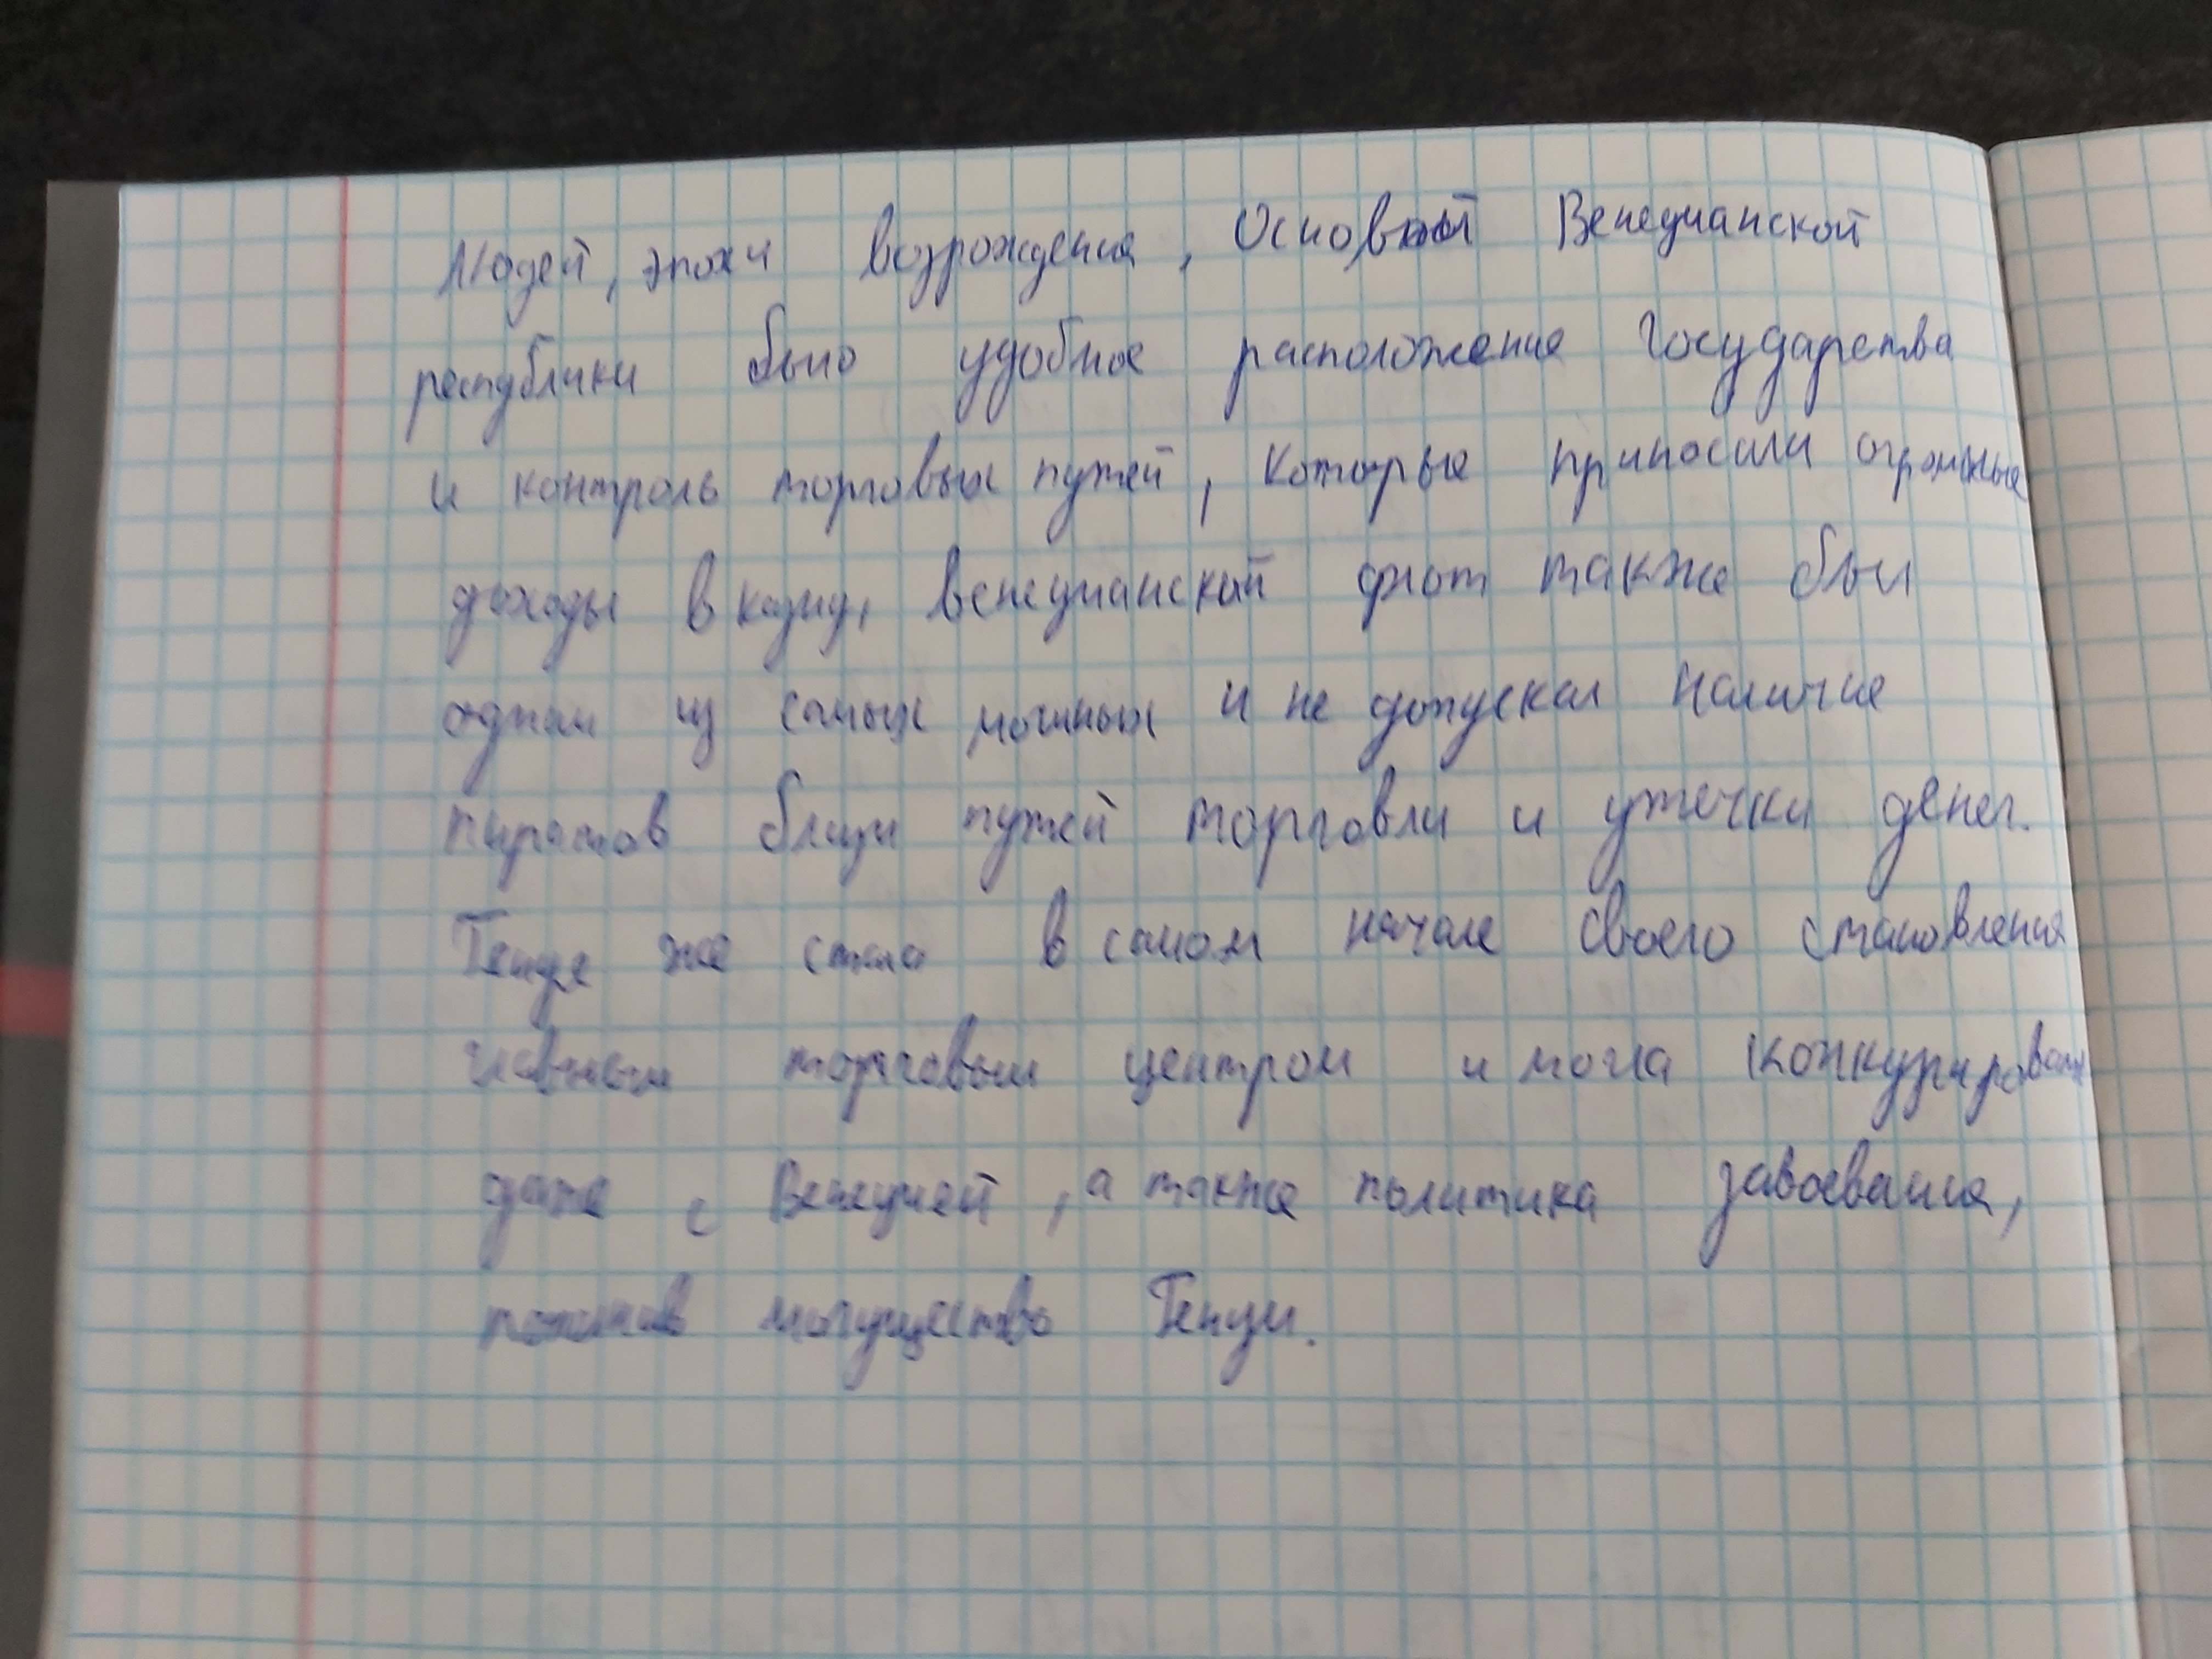 Людей, эпохи возрождения, Основой Венецианской
республики было удобное расположение государства
и контроль торговых путей, которые приносили огромные
доходы в казну, венецианский флот также был
одним из самых мощных и не допускал наличие
пиратов близи путей торговли и утечки денег.
Генуя же стала в самом начале своего становления
главным торговым центром и могла конкурировать
даже с Венецией, а также политика завоевания,
могущество Генуи.